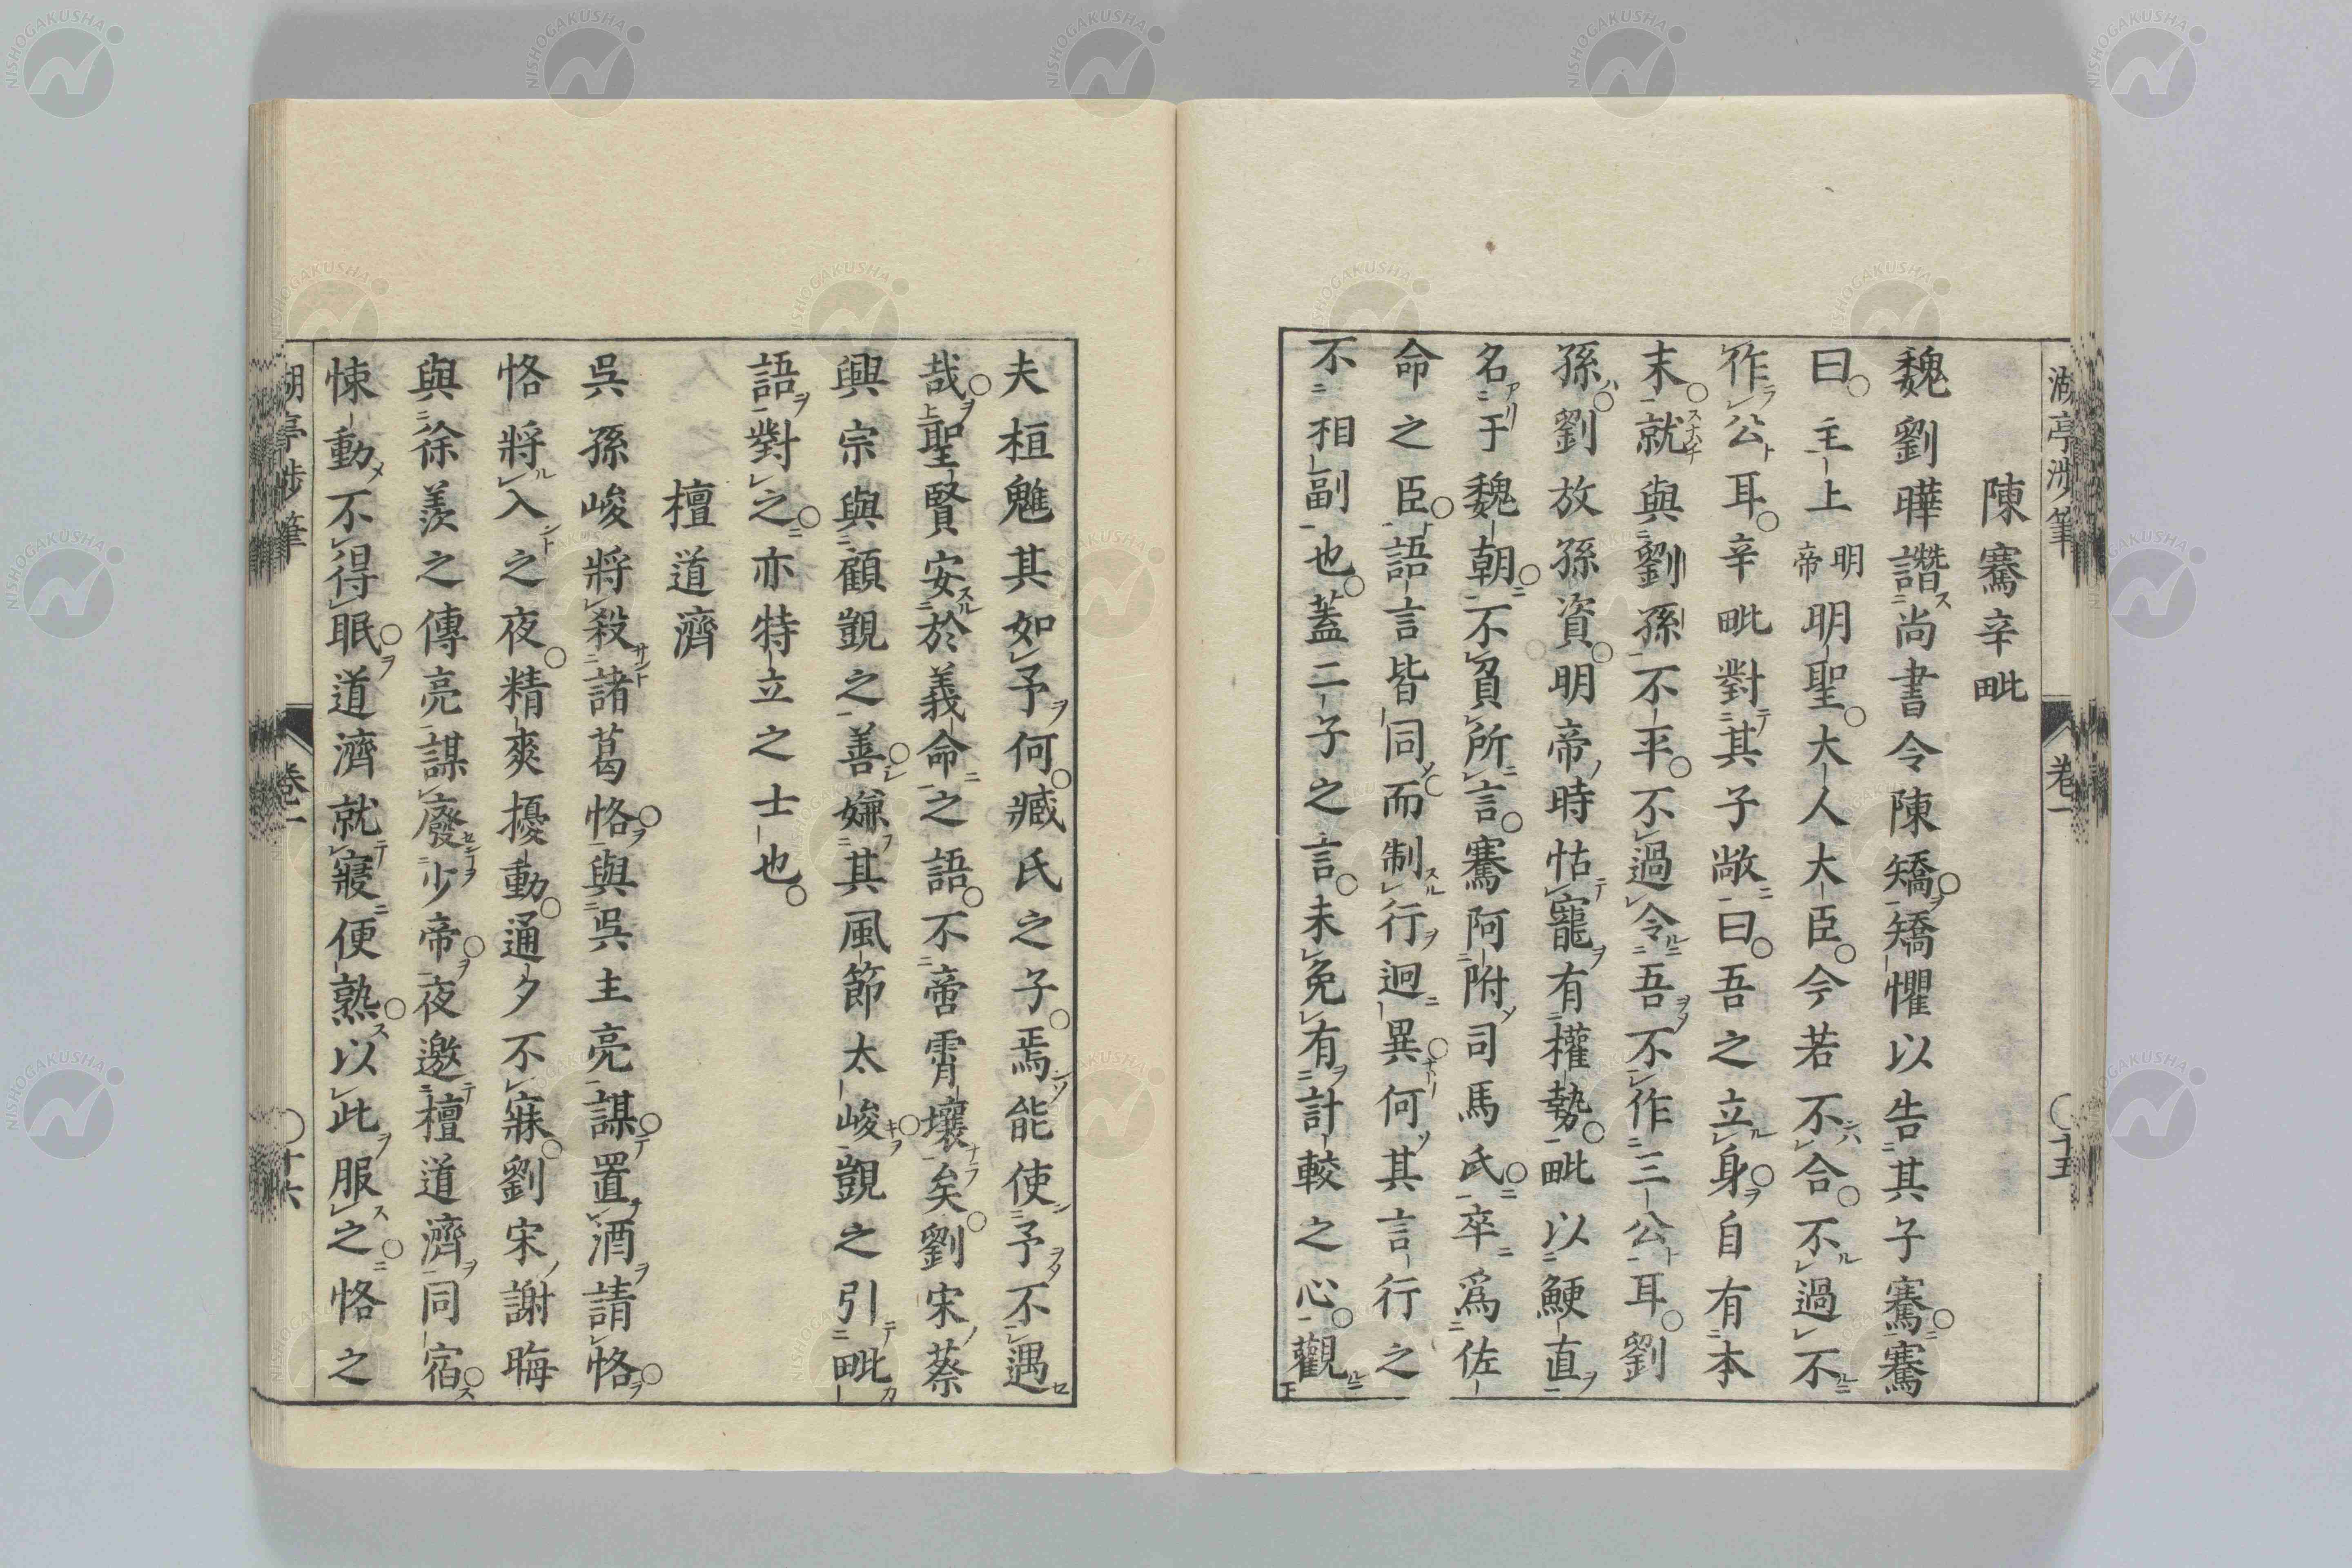 湖亭涉筆　卷一　〇十五
陳騫辛毗
魏劉曄譖尚書令陳矯。矯懼以告其子騫。騫
曰。主上明帝明聖。大人大臣。今若不合。不過不
作公耳。辛毗對其子敞曰。吾之立身。自有本
末。就與劉孫不平。不過令吾不作三公耳。劉
孫。劉放孫資。明帝時怙寵有權勢。毗以鯁直
名于魏朝。不負所言。騫阿附司馬氏。卒爲佐
命之臣。語言皆同。而制行迥異。何其言行之
不相副也。蓋二子之言。未免有計較之心。觀
夫桓魋其如予何。臧氏之子。焉能使予不遇
哉。聖賢安於義命之語。不啻霄壤矣。劉宋蔡
興宗與顧覬之善。嫌其風節太峻。覬之引毗
語對之。亦特立之士也。
檀道濟
吳孫峻將殺諸葛恪。與吳主亮謀。置酒請恪。
恪將入之夜。精爽擾動。通夕不寐。劉宋謝晦
與徐羨之傳亮謀廢少帝。夜邀檀道濟同宿。
悚動不得眠。道濟就寢便熟。以此服之。恪之
湖亭涉筆　卷一　〇十六
NISHOGAKUSHA